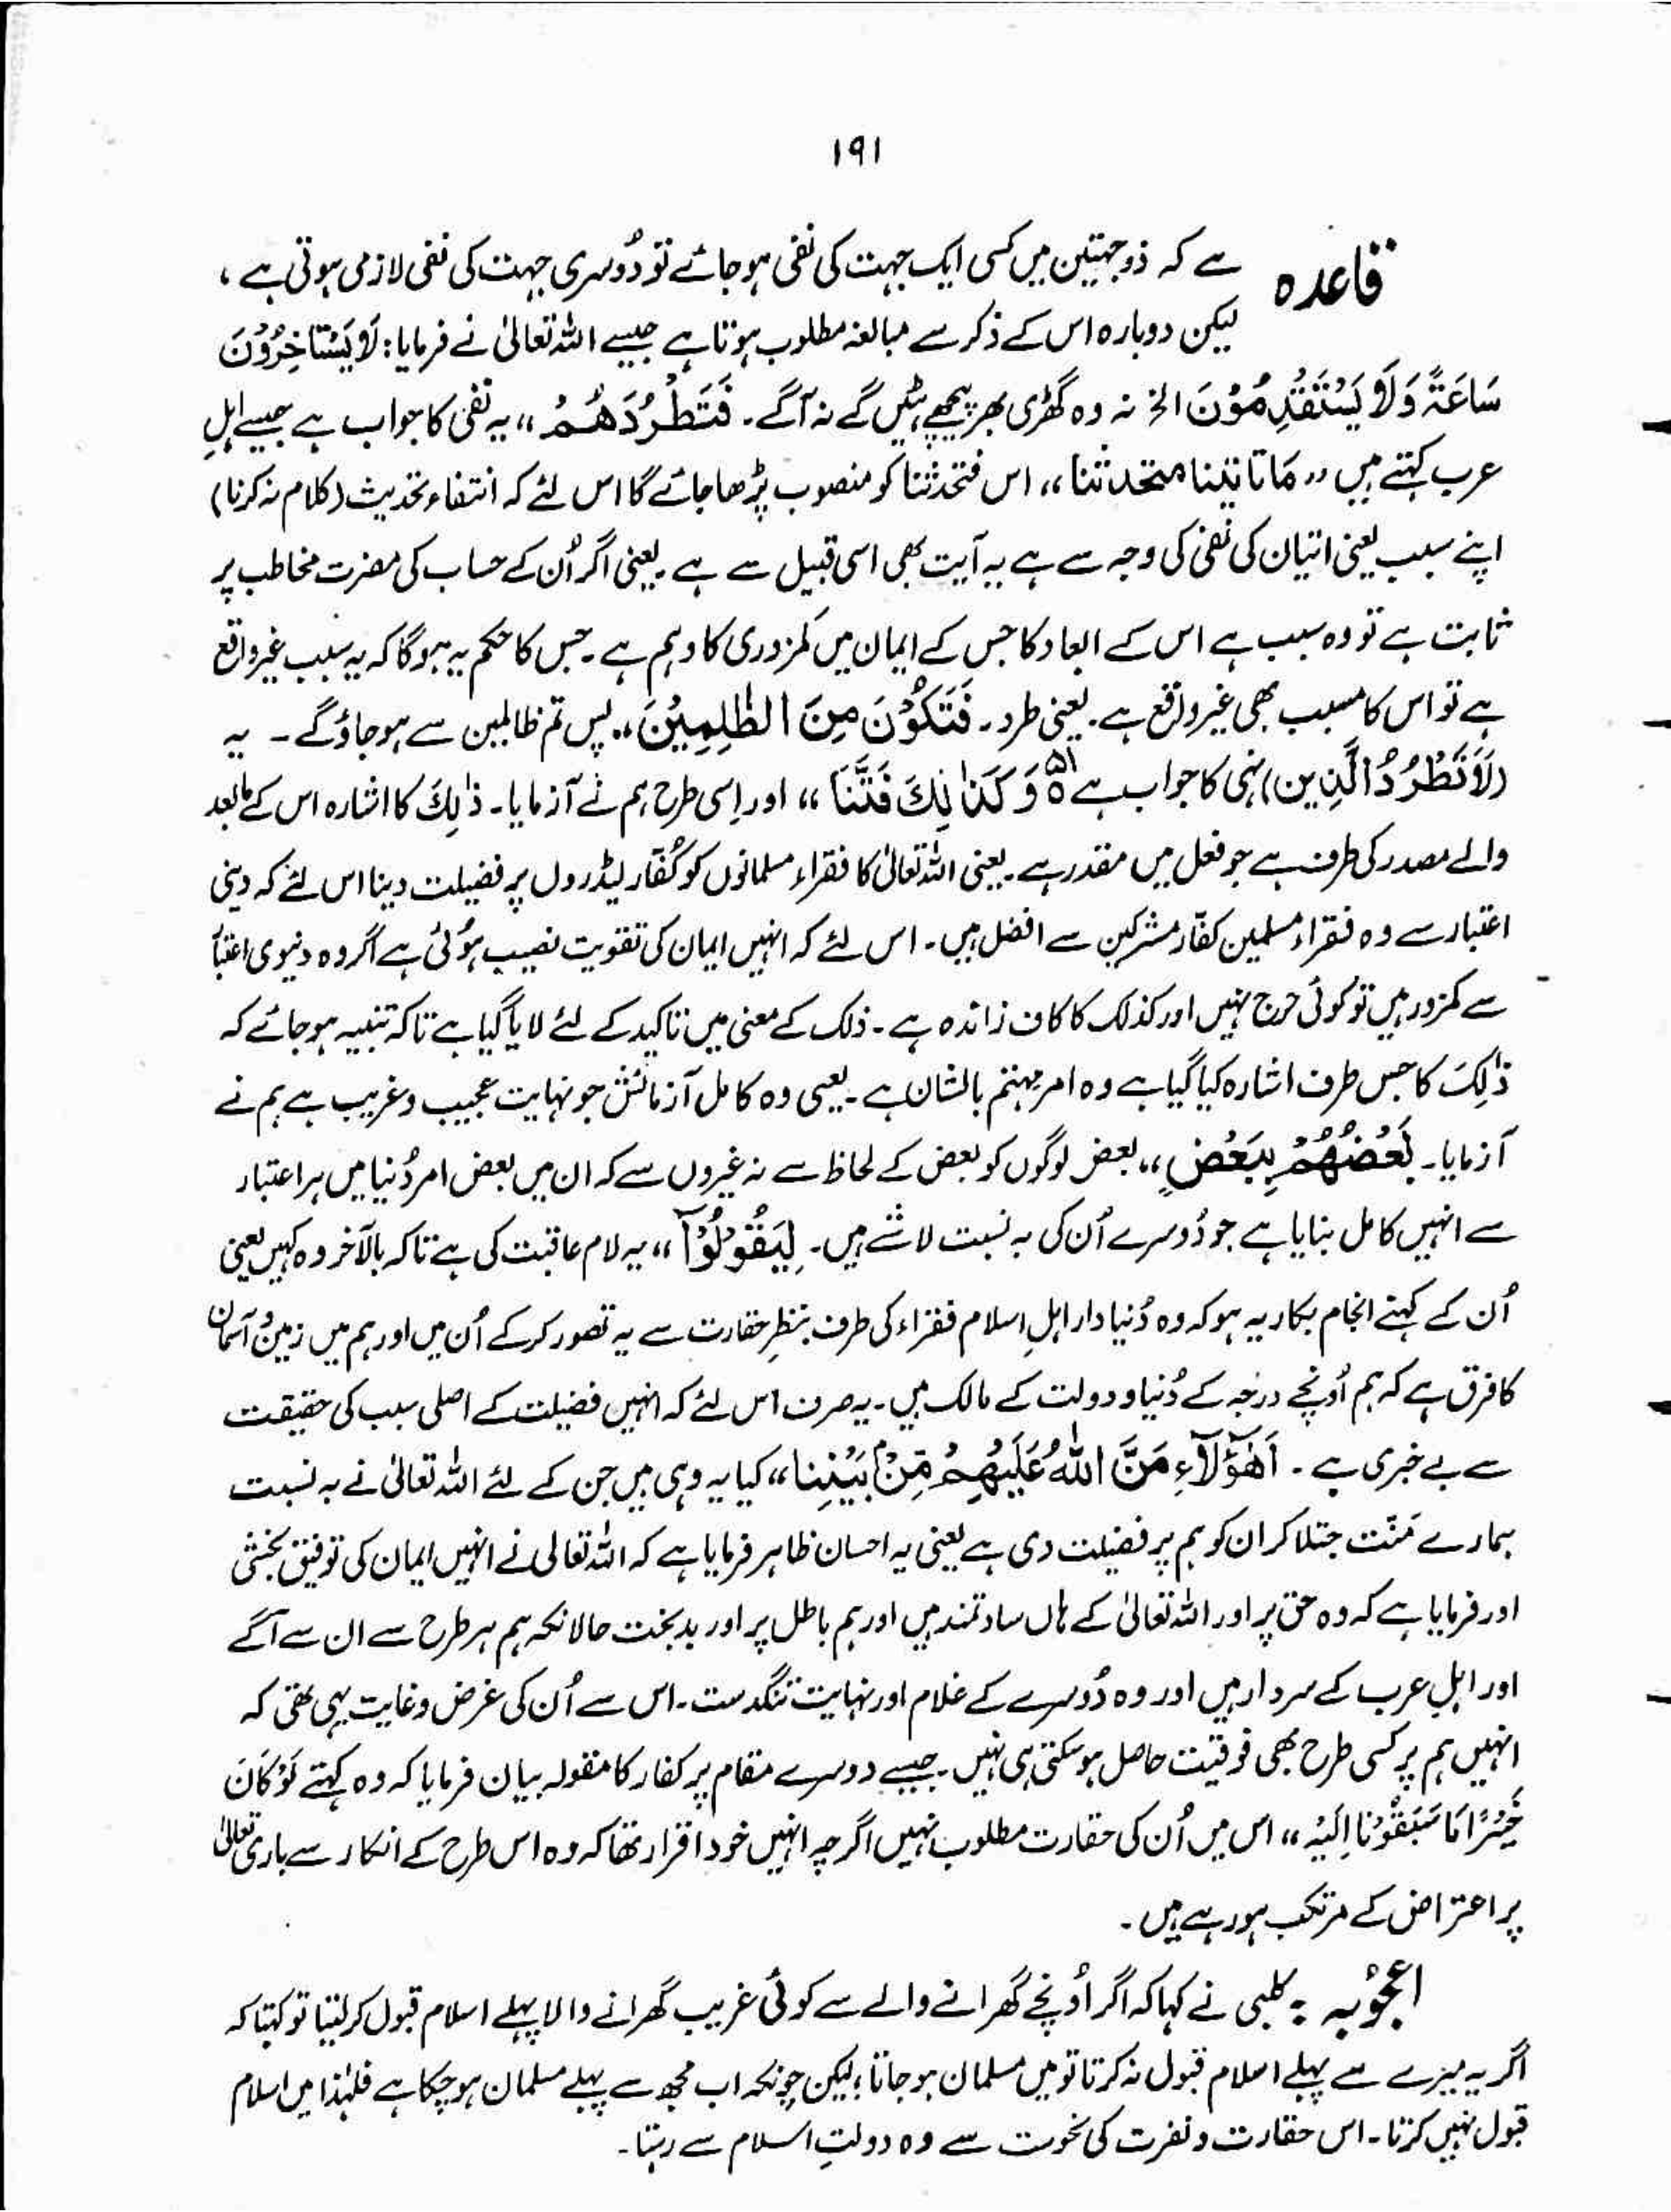 ۱۹۱
قاعدہ ہے کہ ذوجہتین میں کسی ایک جہت کی نفی ہو جائے تو دُوسری جہت کی نفی لازمی ہوتی ہے ،
لیکن دوبارہ اس کے ذکر سے مبالغہ مطلوب ہوتا ہے جیسے اللہ تعالیٰ نے فرمایا : لَا یَسْتَاخِرُوْنَ
سَاعَۃً وَلَا یَسْتَقْدِمُوْنَ الخ نہ وہ گھڑی بھر پیچھے ہٹیں گے نہ آگے ۔ فَتَطْرُدَھُمْ ،، یہ نفی کا جواب ہے جیسے اہلِ
عرب کہتے ہیں ،، مَا تَاتِیْنَا فتحدثنا ،، اس فتحدثنا کو منصوب پڑھا جائے گا اس لئے کہ انتفاء تحدیث (کلام نہ کرنا)
اپنے سبب یعنی اتیان کی نفی کی وجہ سے ہے یہ آیت بھی اسی قبیل سے ہے یعنی اگر اُن کے حساب کی مضرت مخاطب پر
ثابت ہے تو وہ سبب ہے اس کے ابعاد کا جس کے ایمان میں کمزوری کا وہم ہے ۔ جس کا حکم یہ ہوگا کہ یہ سبب غیر واقع
ہے تو اس کا مسبب بھی غیر واقع ہے ۔ یعنی طرد ۔ فَتَکُوْنَ مِنَ الظّٰلِمِیْنَ ،، پس تم ظالمین سے ہو جاؤ گے ۔ یہ
(لَا تَطْرُدُ الَّذِین) نہی کا جواب ہے ۵۱ وَ کَذٰلِكَ فَتَنَّا ،، اور اِسی طرح ہم نے آزمایا ۔ ذٰلِكَ کا اشارہ اس کے مابعد
والے مصدر کی طرف ہے جو فعل میں مقدر ہے ۔ یعنی اللہ تعالیٰ کا فقراء مسلمانوں کو کُفّار لیڈروں پر فضیلت دینا اس لئے کہ دینی
اعتبار سے وہ فقراءِ مسلمین کفّار مشرکین سے افضل ہیں ۔ اس لئے کہ انہیں ایمان کی تقویت نصیب ہوُئی ہے اگر وہ دنیوی اعتبار
سے کمزور ہیں تو کوئی حرج نہیں اور کذلک کا کاف زائدہ ہے ۔ ذلک کے معنی میں تاکید کے لئے لایا گیا ہے تاکہ تنبیہ ہو جائے کہ
ذٰلِكَ کا جس طرف اشارہ کیا گیا ہے وہ امر مہتم بالشان ہے ۔ یعی وہ کامل آزمائش جو نہایت عجیب و غریب ہے ہم نے
آزمایا ۔ بَعْضُھُمْ بِبَعْضٍ ،، بعض لوگوں کو بعض کے لحاظ سے نہ غیروں سے کہ ان میں بعض امر دُنیا میں ہر اعتبار
سے انہیں کامل بنایا ہے جو دُوسرے اُن کی بہ نسبت لاشے ہیں ۔ لِیَقُوْلُوْآ ،، یہ لام عاقبت کی ہے تاکہ بالآخر وہ کہیں یعنی
اُن کے کہتے انجام بکار یہ ہو کہ وہ دُنیادار اہلِ اسلام فقراء کی طرف بنظرِ حقارت سے یہ تصور کر کے اُن میں اور ہم میں زمین و آسمان
کا فرق ہے کہ ہم اُونچے درجہ کے دُنیا و دولت کے مالک ہیں ۔ یہ صرف اس لئے کہ انہیں فضیلت کے اصلی سبب کی حقیقت
سے بے خبری ہے ۔ اَھٰٓؤُلَآءِ مَنَّ اللّٰہُ عَلَیْھِمْ مِّنْۢ بَیْنِنَا ،، کیا یہ وہی ہیں جن کے لئے اللہ تعالیٰ نے بہ نسبت
ہمارے مَنّت جتلا کر ان کو ہم پر فضیلت دی ہے یعنی یہ احسان ظاہر فرمایا ہے کہ اللہ تعالی نے انہیں ایمان کی توفیق بخشی
اور فرمایا ہے کہ وہ حق پر اور اللہ تعالیٰ کے ہاں سادتمند ہیں اور ہم باطل پر اور بدبخت حالانکہ ہم ہر طرح سے ان سے آگے
اور اہلِ عرب کے سردار ہیں اور وہ دُوسرے کے غلام اور نہایت تنگدست ۔ اس سے اُن کی غرض و غایت یہی تھی کہ
انہیں ہم پر کسی طرح بھی فوقیت حاصل ہو سکتی ہی نہیں ۔ جیسے دوسرے مقام پر کفار کا مقولہ بیان فرمایا کہ وہ کہتے لَوْ کَانَ
خَیْرًا مَا سَبَقُوْنَا اِلَیْہِ ،، اس میں اُن کی حقارت مطلوب نہیں اگرچہ انہیں خود اقرار تھا کہ وہ اس طرح کے انکار سے باری تعالیٰ
پر اعتراض کے مرتکب ہو رہے ہیں ۔
اعجُوبہ : کلبی نے کہا کہ اگر اُونچے گھرانے والے سے کوئی غریب گھرانے والا پہلے اسلام قبول کر لیتا تو کہتا کہ
اگر یہ میرے سے پہلے اسلام قبول نہ کرتا تو میں مسلمان ہو جاتا ، لیکن چونکہ اب مجھ سے پہلے مسلمان ہو چکا ہے فلہٰذا میں اسلام
قبول نہیں کرتا ۔ اس حقارت و نفرت کی نحوست سے وہ دولتِ اسلام سے رہتا ۔